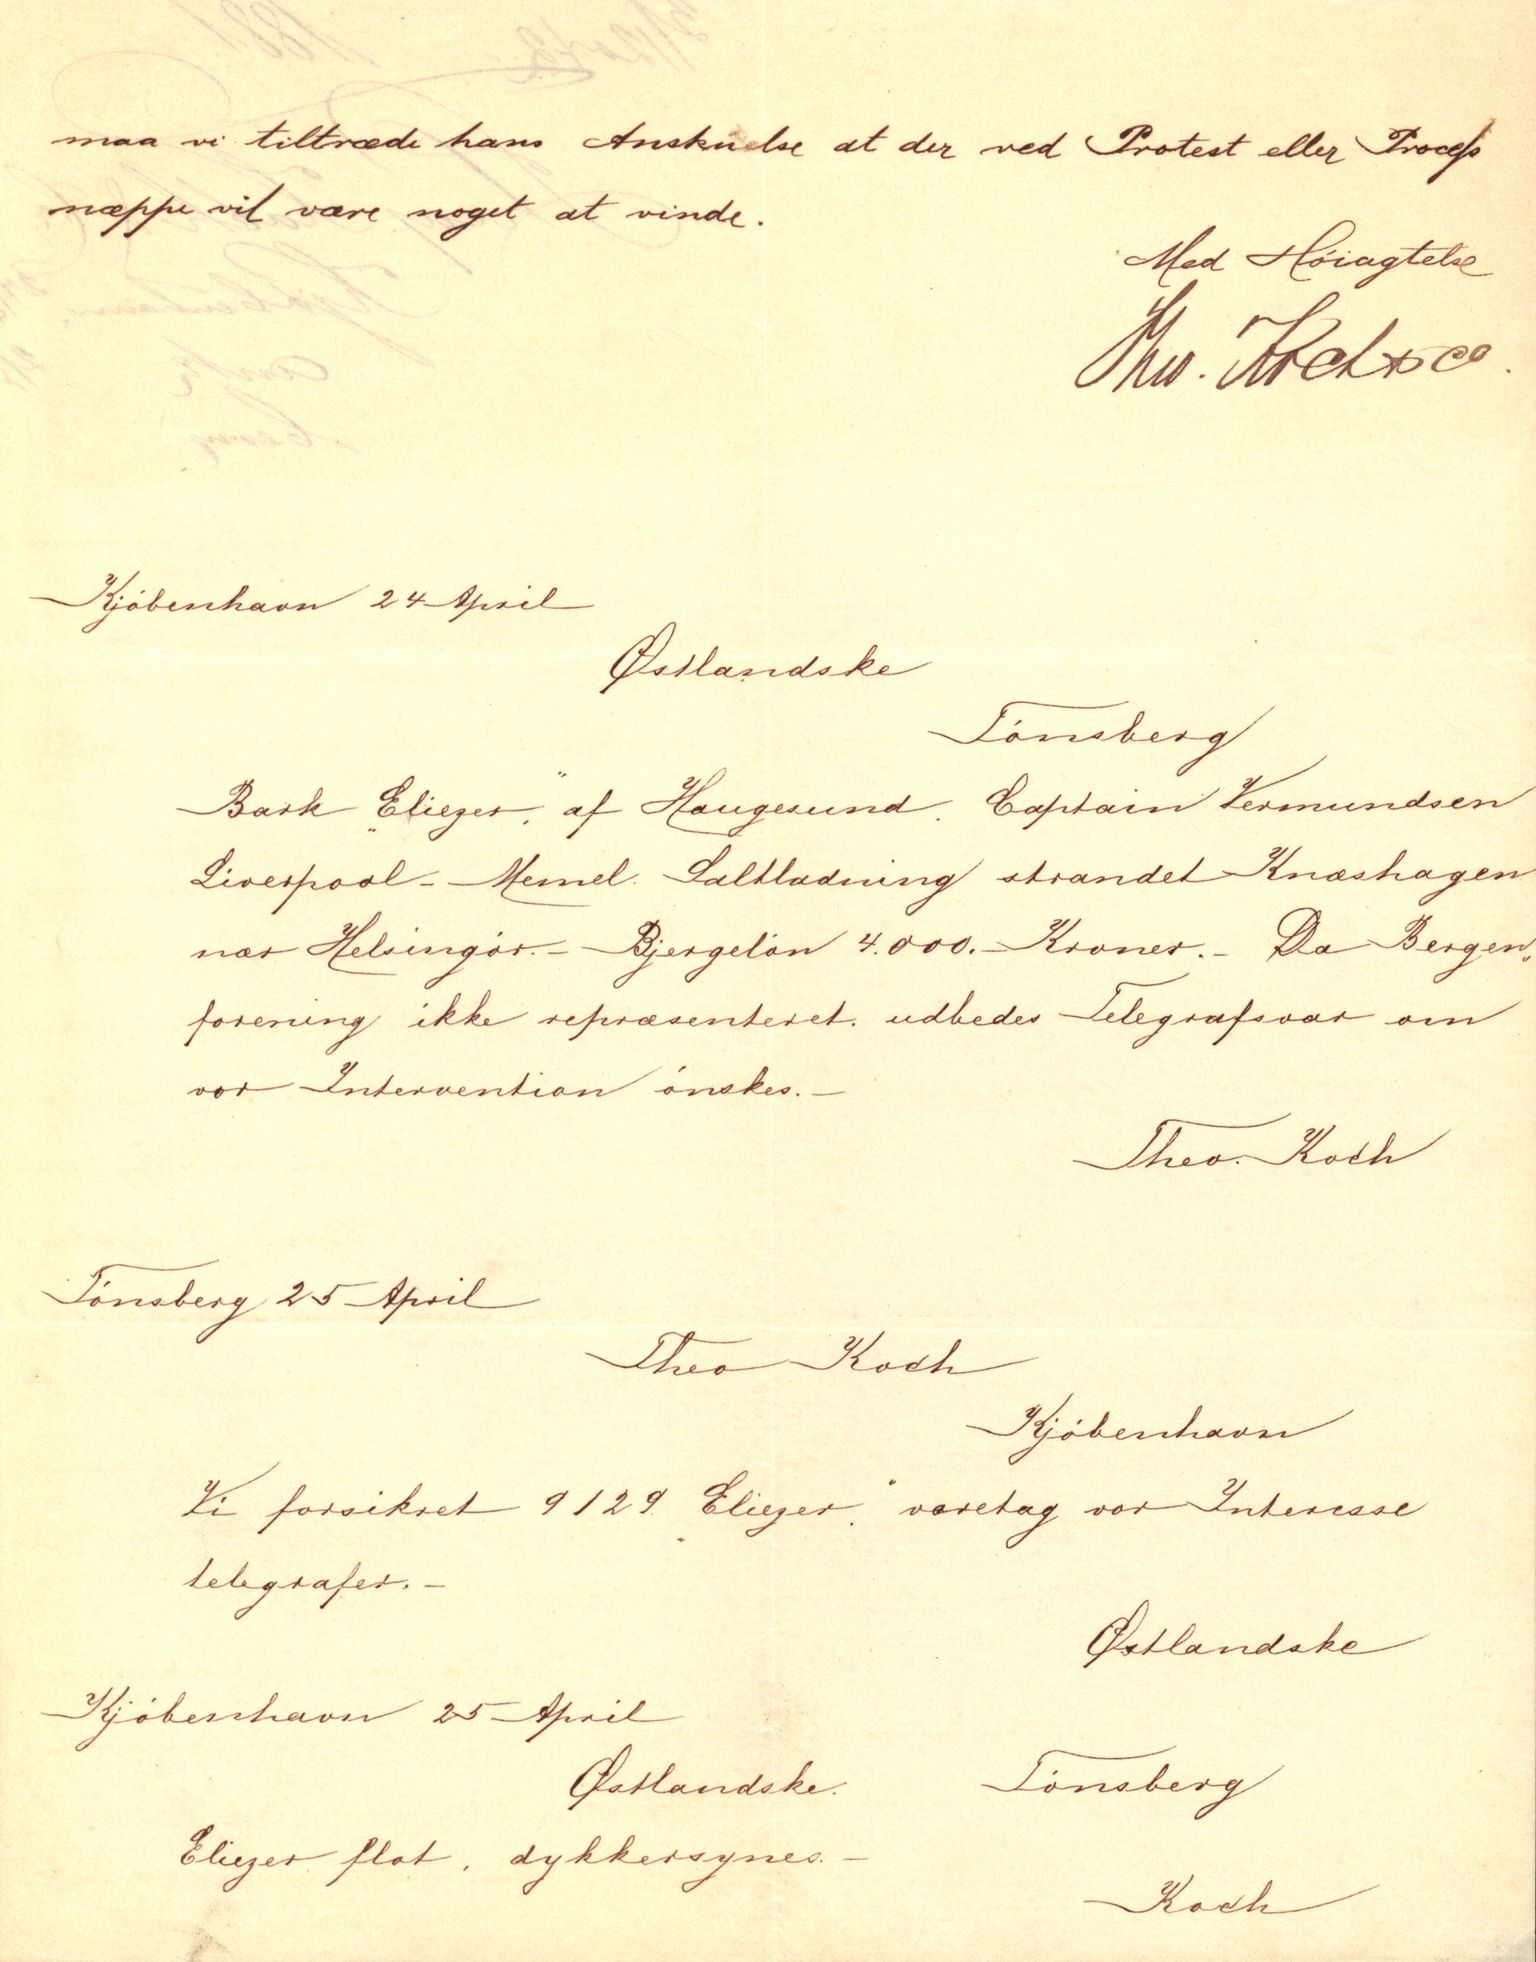 maa vi tiltræde hans Anskuelse at der ved Protest eller Process
næppe vil være noget at vinde.
Med Høiagtelse
Theo. Koch & Co.
Kjøbenhavn 24 April
Østlandske
Tønsberg
Bark "Eliezer," af Haugesund. Captain Vermundsen
Liverpool - Memel. Saltladning strandet Knæshagen
nær Helsingør. - Bjergeløn 4.000. - Kroner. - Da Bergen„
forening ikke repræsenteret. udbedes Telegrafsvar om
vor Intervention ønskes. -
Theo. Koch
Tønsberg 25 April
Theo Koch
Kjøbenhavn
Vi forsikret 9129 "Eliezer," varetag vor Interesse
telegrafer. -
Østlandske
Kjøbenhavn 25 April
Østlandske. Tønsberg
Eliezer flot, dykkersynes. -
Koch